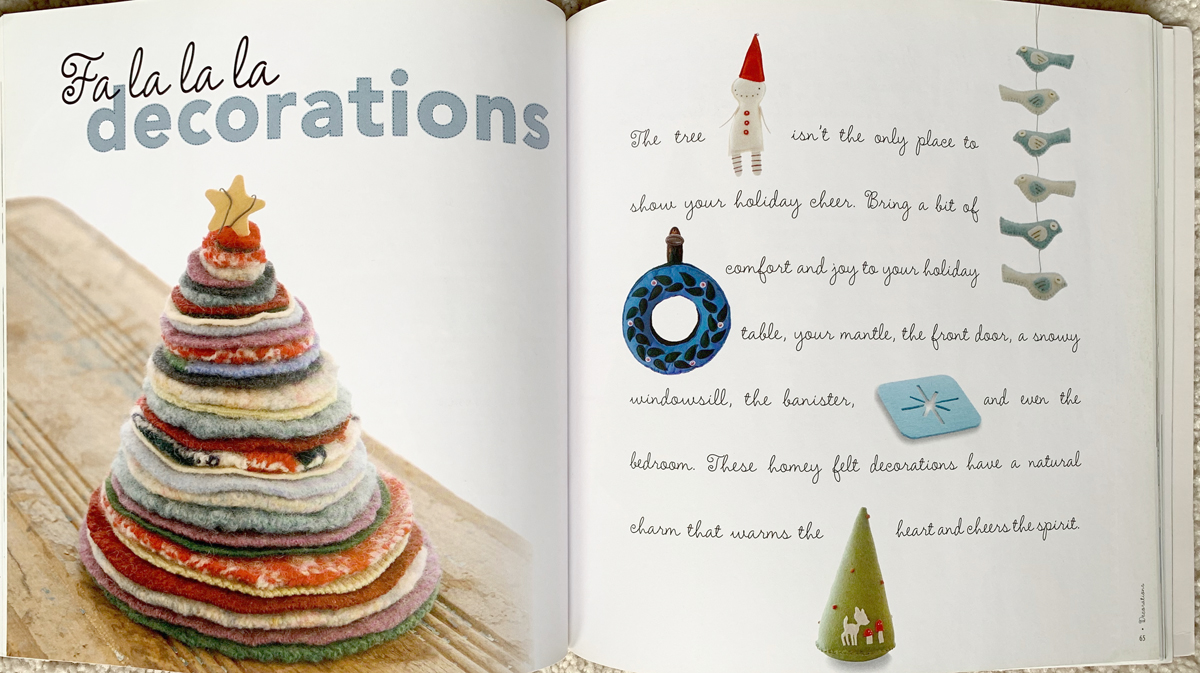 Fa la la la
decorations
The tree isn't the only place to
show your holiday cheer. Bring a bit of
comfort and joy to your holiday
table, your mantle, the front door, a snowy
windowsill, the banister, and even the
bedroom. These homey felt decorations have a natural
charm that warms the heart and cheers the spirit.
65 • Decorations